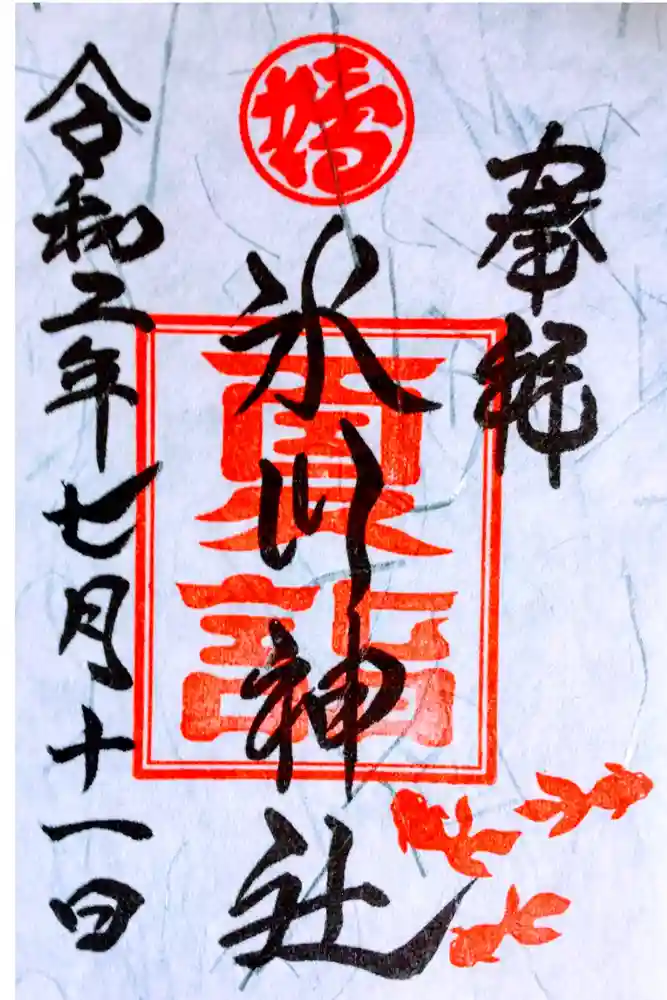 奉拝
夏詣
氷川神社
令和二年七月十一日